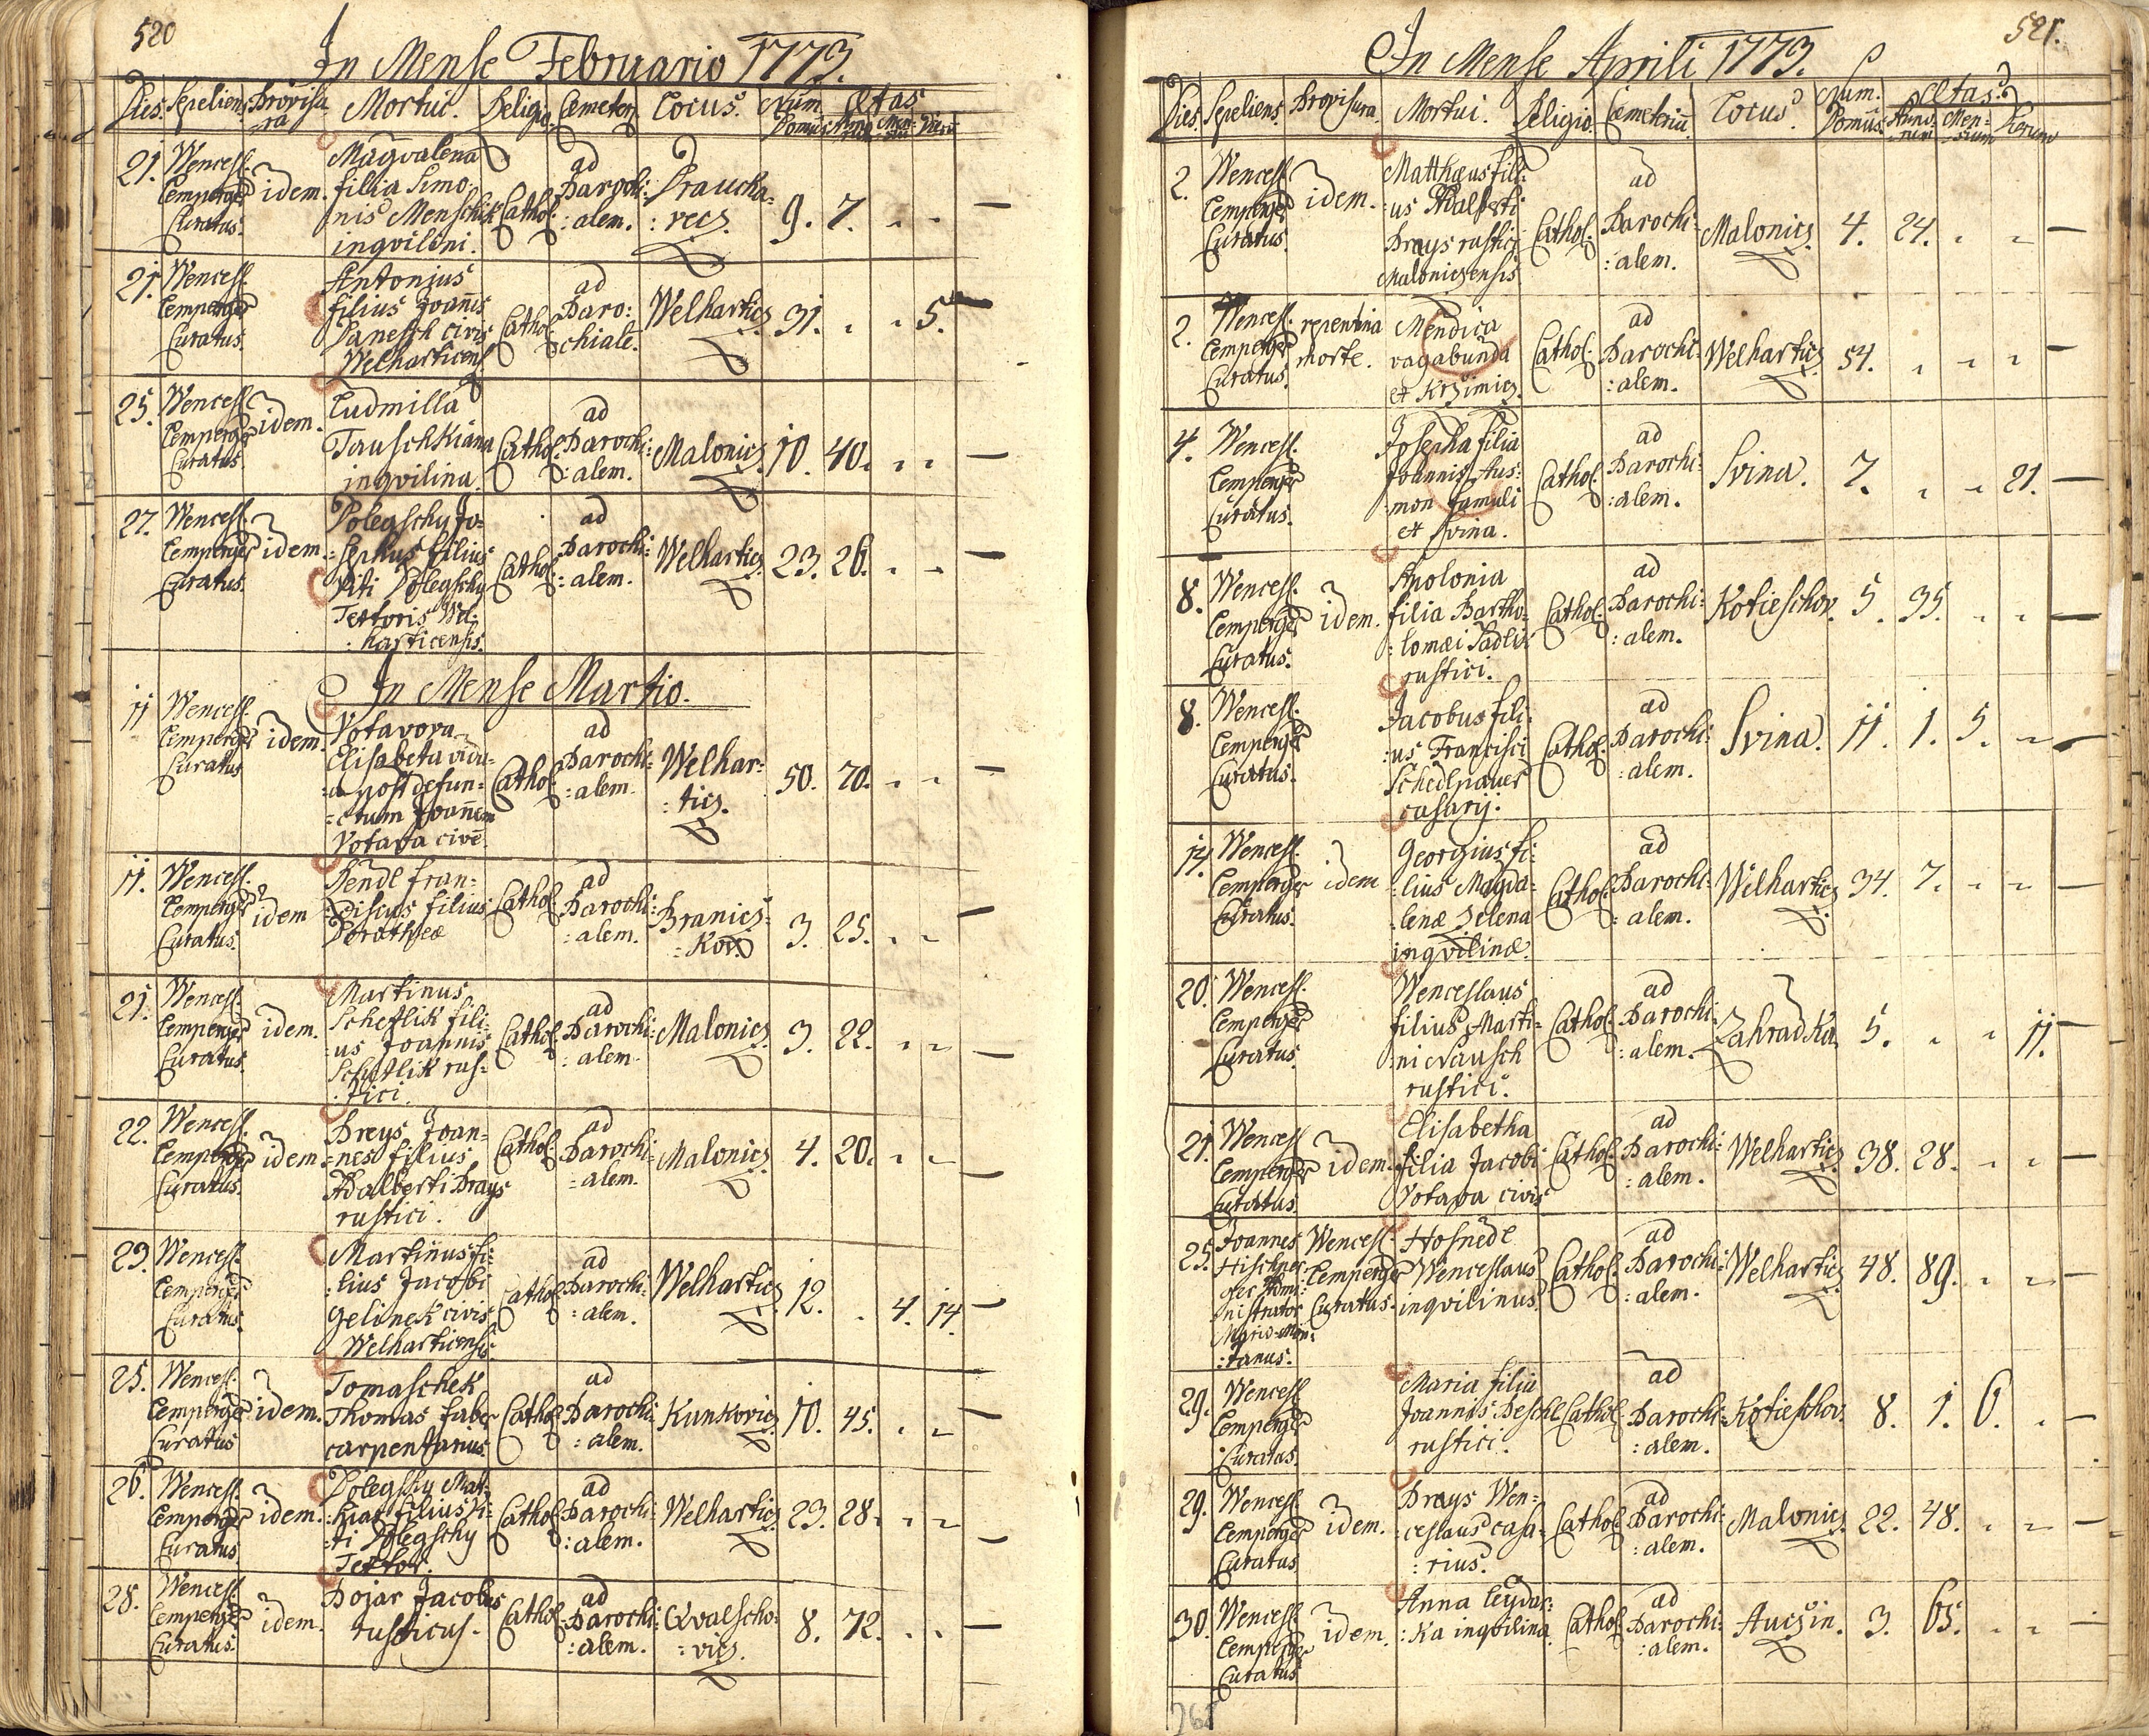 520
In Mense Februario 1773.
Dies. Sepeliens. Provisura Mortui. Religio. Cemeter. Locus. Num. Domus Ætas. Anno Men: Dieru
21. Wencesl. Lemperger Curatus. idem. Magdalena filia Simo nis Menschik inqvilini. Cathol. ad Parochi: :alem. Praucha: :vecz. 9. 7. „ „ —
21. Wencesl. Lemperger Curatus. Antonius filius Joanis Panesch civis Welharticens. Cathol. ad Paro: chiale. Welharticz 31. „ „ 5. —
25. Wencesl. Lemperger Curatus. idem. Ludmilla Tauschkiana inqvilina. Cathol. ad Parochi: :alem. Malonicz. 10. 40. „ „ —
27. Wencesl. Lemperger Curatus. idem. Polegschy Jo= :sephus filius Viti Polegschy Textoris Wel: :harticensis. Cathol. ad Parochi: :alem. Welharticz. 23. 26. „ „ —
In Mense Martio.
11 Wencesl. Lemperger Curatus idem. Votavova Elisabeta vidu= :a post defun= =ctum Joanem Votava cive. Cathol. ad Parochi: :alem. Welhar: :ticz. 50. 70. „ „ —
11. Wencesl. Lemperger Curatus. idem Pendl Fran= :ciscus filius Dorotheæ Cathol. ad Parochi: :alem. Branicz= :kov. 3. 25. „ „ —
21. Wencesl. Lemperger Curatus. idem. Martinus Schetlik fili: :us Joannis Schetlik rus= :tici. Cathol. ad Parochi: :alem. Malonicz. 3. 22. „ „ —
22. Wencesl. Lemperger Curatus. idem Breys Joan= =nes filius Adalberti Brays rustici. Cathol. ad Parochi: =alem. Malonicz. 4. 20. „ „ —
23. Wencesl. Lemperger Curatus. Martinus fi: :lius Jacobi Gelinek civis Welharticensis. Cathol. ad Parochi: :alem. Welharticz 12. „ 4. 14. —
25. Wencesl. Lemperger Curatus idem. Tomaschek Thomas faber carpentarius. Cathol. ad Parochi: :alem. Kunkovicz 10. 45. „ „ —
26. Wencesl. Lemperger Curatus idem. Polegschy Mat= :hias filius Vi: :ti Polegschy Textor. Cathol. ad Parochi: :alem. Welharticz 23. 28. „ „ —
28. Wencesl. Lemperger Curatus. idem. Bojar Jacobus rusticus. Cathol. ad Parochi: :alem. Qvalscho: :vicz. 8. 72. „ „ —
521.
In Mense Aprili 1773.
Dies. Sepeliens. Provisura. Mortui. Religio. Cemetriu. Locus. Num. Domus. Ætas. Anno: rum Men= sium Dierum
2. Wencesl. Lemperger Curatus. idem. Matthæus fili: :us Adalberti Brays rustici Maloniczensis Cathol. ad Parochi: :alem. Malonicz. 4. 24. „ „ —
2. Wencesl. Lemperger Curatus. repentina morte. Mendica vagabunda et Krzimicz. Cathol. ad Parochi: :alem. Welharticz 54. „ „ „ —
4. Wencesl. Lemperger Curatus. Josepha filia Joannis Aus: mon famuli et Svina. Cathol. ad Parochi: :alem. Svina. 7. „ „ 21. —
8. Wencesl. Lemperger Curatus. idem. Apolonia filia Bartho: :lomæi Sadlix rustici. Cathol. ad Parochi: :alem. Kotieschov. 5. 35. „ „ —
8. Wencesl. Lemperger Curatus. Jacobus fili: :us Francisci Schedlpauer casarij. Cathol. ad Parochi: :alem. Svina. 11. 1. 5. „ —
14. Wencesl. Lemperger Curatus. idem Georgius fi: :lius Magda: :lenæ Selena inqvilinæ. Cathol. ad Parochi: :alem. Welharticz 34. 7. „ „ —
20. Wencesl. Lemperger Curatus. Wenceslaus filius Marti: ni Nausch rustici. Cathol. ad Parochi: :alem. Zahradka 5. „ „ 11. —
21. Wencesl. Lemperger Curatus. idem. Elisabetha filia Jacobi Votava civis Cathol. ad Parochi: :alem. Welharticz 38. 28. „ „ —
25. Joannes nistrator :tanus. Wencesl. Lemperger Curatus. Hosnedl Wenceslaus inqvilinus. Cathol. ad Parochi: :alem. Welharticz 48. 89. „ „ —
29. Wencesl. Lemperger Curatus. Maria filia Joannis Peschl rustici. Cathol. ad Parochi: :alem. Kotieschov. 8. 1. 6. „ —
29. Wencesl. Lemperger Curatus idem. Brays Wen= :ceslaus casa= :rius. Cathol. ad Parochi: :alem. Malonicz. 22. 48. „ „ —
30. Wencesl. Lemperger Curatus idem. Anna Leydar: :ka inqvilina Cathol. ad Parochi: :alem. Auczin. 3. 65. „ „ —
268